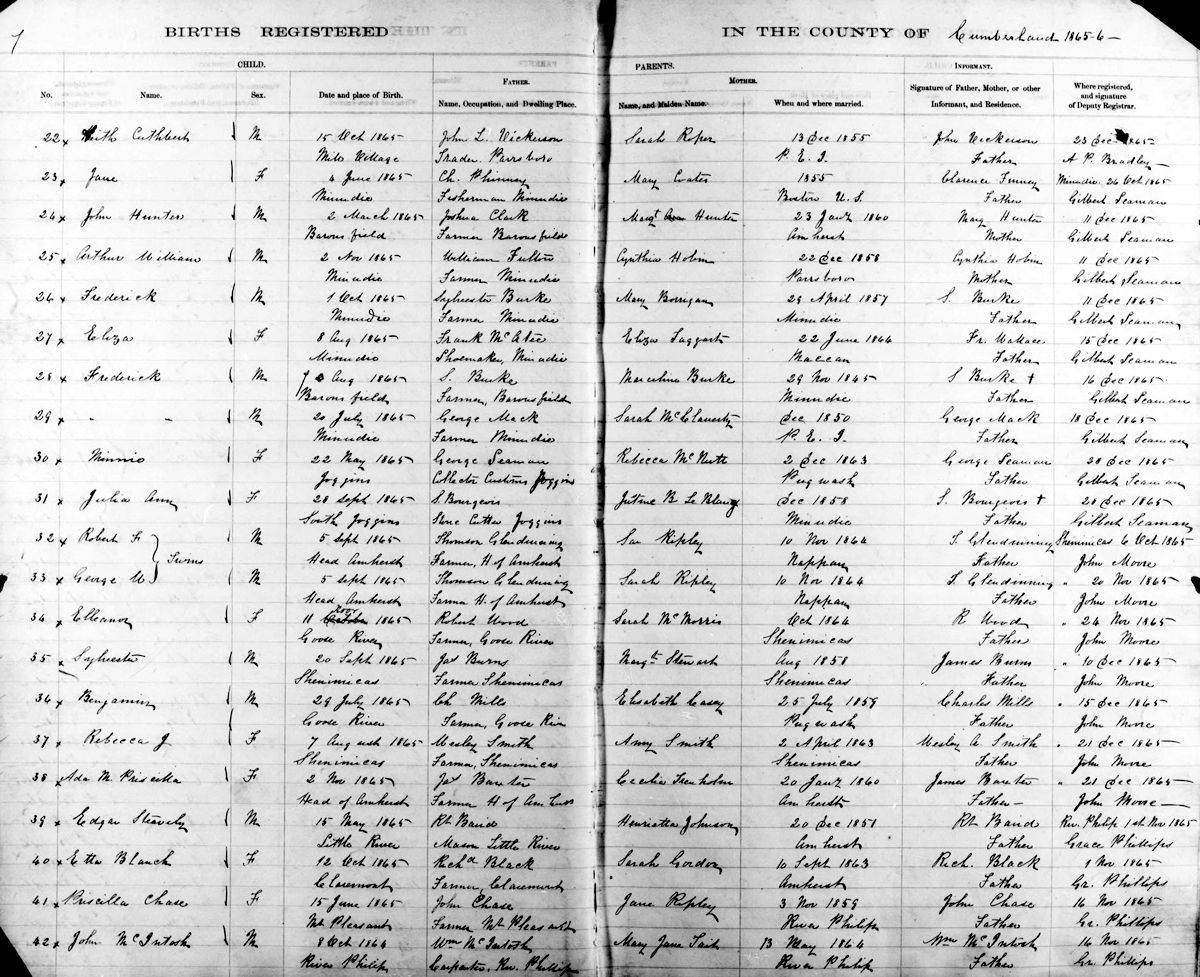 7
BIRTHS REGISTERED IN THE COUNTY OF Cumberland 1865-6-
CHILD. PARENTS. INFORMANT.
FATHER. MOTHER.
No. Name. Sex. Date and place of Birth. Name, Occupation, and Dwelling Place. Name, and Maiden Name. When and where married. Signature of Father, Mother, or other Informant, and Residence. Where registered, and signature of Deputy Registrar.
22 x Cuthbert M 15 Oct 1865 John L. Vickerson Sarah Roper 13 Dec 1855 John Vickerson 23 Dec 1865
Mill Village Trader Parrsboro P. E. I. Father A P. Bradley
23 x Jane F 4 June 1865 Ch. Phinney Mary Coates 1855 Clarence Finney Minudie 26 Oct 1865
Minudie Fisherman Minudie Boston U. S. Father Gilbert Seaman
24 x John Hunter M 2 March 1865 Joshua Clark Margt Hunter 23 Jany 1860 Marg Hunter 11 Dec 1865
Baronsfield Farmer Baronsfield Amherst Mother Gilbert Seaman
25 x Arthur William M 2 Nov 1865 William Fulton Cynthia Hobm 22 Dec 1858 Cynthia Hobm 11 Dec 1865
Minudie Farmer Minudie Parrsboro Mother Gilbert Seaman
26 x Frederick M 1 Oct 1865 Sylvester Burke Mary Berrigan 29 April 1857 S. Burke 11 Dec 1865
Minudie Farmer Minudie Minudie Father Gilbert Seaman
27 x Eliza F 8 Aug 1865 Frank McAtee Eliza Taggart 22 June 1864 Fr. Wallace 15 Dec 1865
Minudie Shoemaker, Minudie Maccan Father Gilbert Seaman
28 x Frederick M Aug 1865 S. Burke Marcelina Burke 29 Nov 1845 S Burke + 16 Dec 1865
Baronsfield Farmer, Baronsfield Minudie Father Gilbert Seaman
29 x - - M 20 July 1865 George Mack Sarah McClaverty Dec 1850 George Mack 18 Dec 1865
Minudie Farmer Minudie P. E. I. Father Gilbert Seaman
30 x Minnie F 22 May 1865 George Seaman Rebecca McNutt 2 Dec 1863 George Seaman 28 Dec 1865
Joggins Collector Customs Joggins Pugwash Father Gilbert Seaman
31 x Julia Ann F 28 Sept 1865 S. Bourgeois Justine B Le Blanc Dec 1858 S. Bourgeois + 28 Dec 1865
South Joggins Stone Cutter Joggins Minudie Father Gilbert Seaman
32 x Robert F. M 5 Sept 1865 Thomson Glendinning Sar Ripley 10 Nov 1864 T. Glendinning Sheminicas 6 Oct 1865
Twins Head Amherst Farmer, H. of Amherst Nappan Father John Moore
33 x George W. M 5 Sept 1865 Thomson Glendinning Sarah Ripley 10 Nov 1864 T. Glendinning " 20 Nov 1865
Head Amherst Farmer H. of Amherst Nappan Father John Moore
34 x Elleanor F 11 Nov 1865 Robert Wood Sarah McMorris Oct 1864 R Wood " 24 Nov 1865
Goose River Farmer, Goose River Shenimicas Father John Moore
35 x Sylvester M 20 Sept 1865 Jas Burns Margt Stewart Aug 1858 James Burns " 10 Dec 1865
Shenimicas Farmer Shenimicas Shenimicas " Father John Moore
36 x Benjamin M 29 July 1865 Ch Mills Elisabeth Casey 25 July 1859 Charles Mills " 15 Dec 1865
Goose River Farmer, Goose River Pugwash Father John Moore
37 x Rebecca J F 7 August 1865 Wesley Smith Amy Smith 2 April 1863 Wesley A. Smith " 21 Dec 1865
Shenimicas Farmer, Shenimicas Shenimicas Father John Moore
38 x Ada M. Priscilla F 2 Nov 1865 Jas Baxter Cecelia Trenholm 20 Jany 1860 James Baxter " 21 Dec 1865
Head of Amherst Farmer H of Amherst Amherst Father John Moore
39 x Edgar Stavely M 15 May 1865 Rt Baird Henrietta Johnson 20 Dec 1851 Rt Baird Riv. Philip 1st Nov 1865
Little River Mason Little River Amherst Father Grace Phillips
40 x Etta Blanch F 12 Oct 1865 Richd Black Sarah Gordon 10 Sept 1863 Rich. Black 9 Nov 1865
Claremont Farmer, Claremont Amherst Father Gr. Phillips
41 x Priscilla Chase F 15 June 1865 John Chase Jane Ripley 3 Nov 1859 John Chase 16 Nov 1865
Mt Pleasant Farmer Mt Pleasant River Philip Father Gr. Phillips
42 x John McIntosh M 8 Oct 1864 Wm McIntosh Mary Jane Tait 13 May 1864 Wm McIntosh 16 Nov 1865
River Philip Carpenter, Riv. Phillip River Philip Father Gr. Phillips